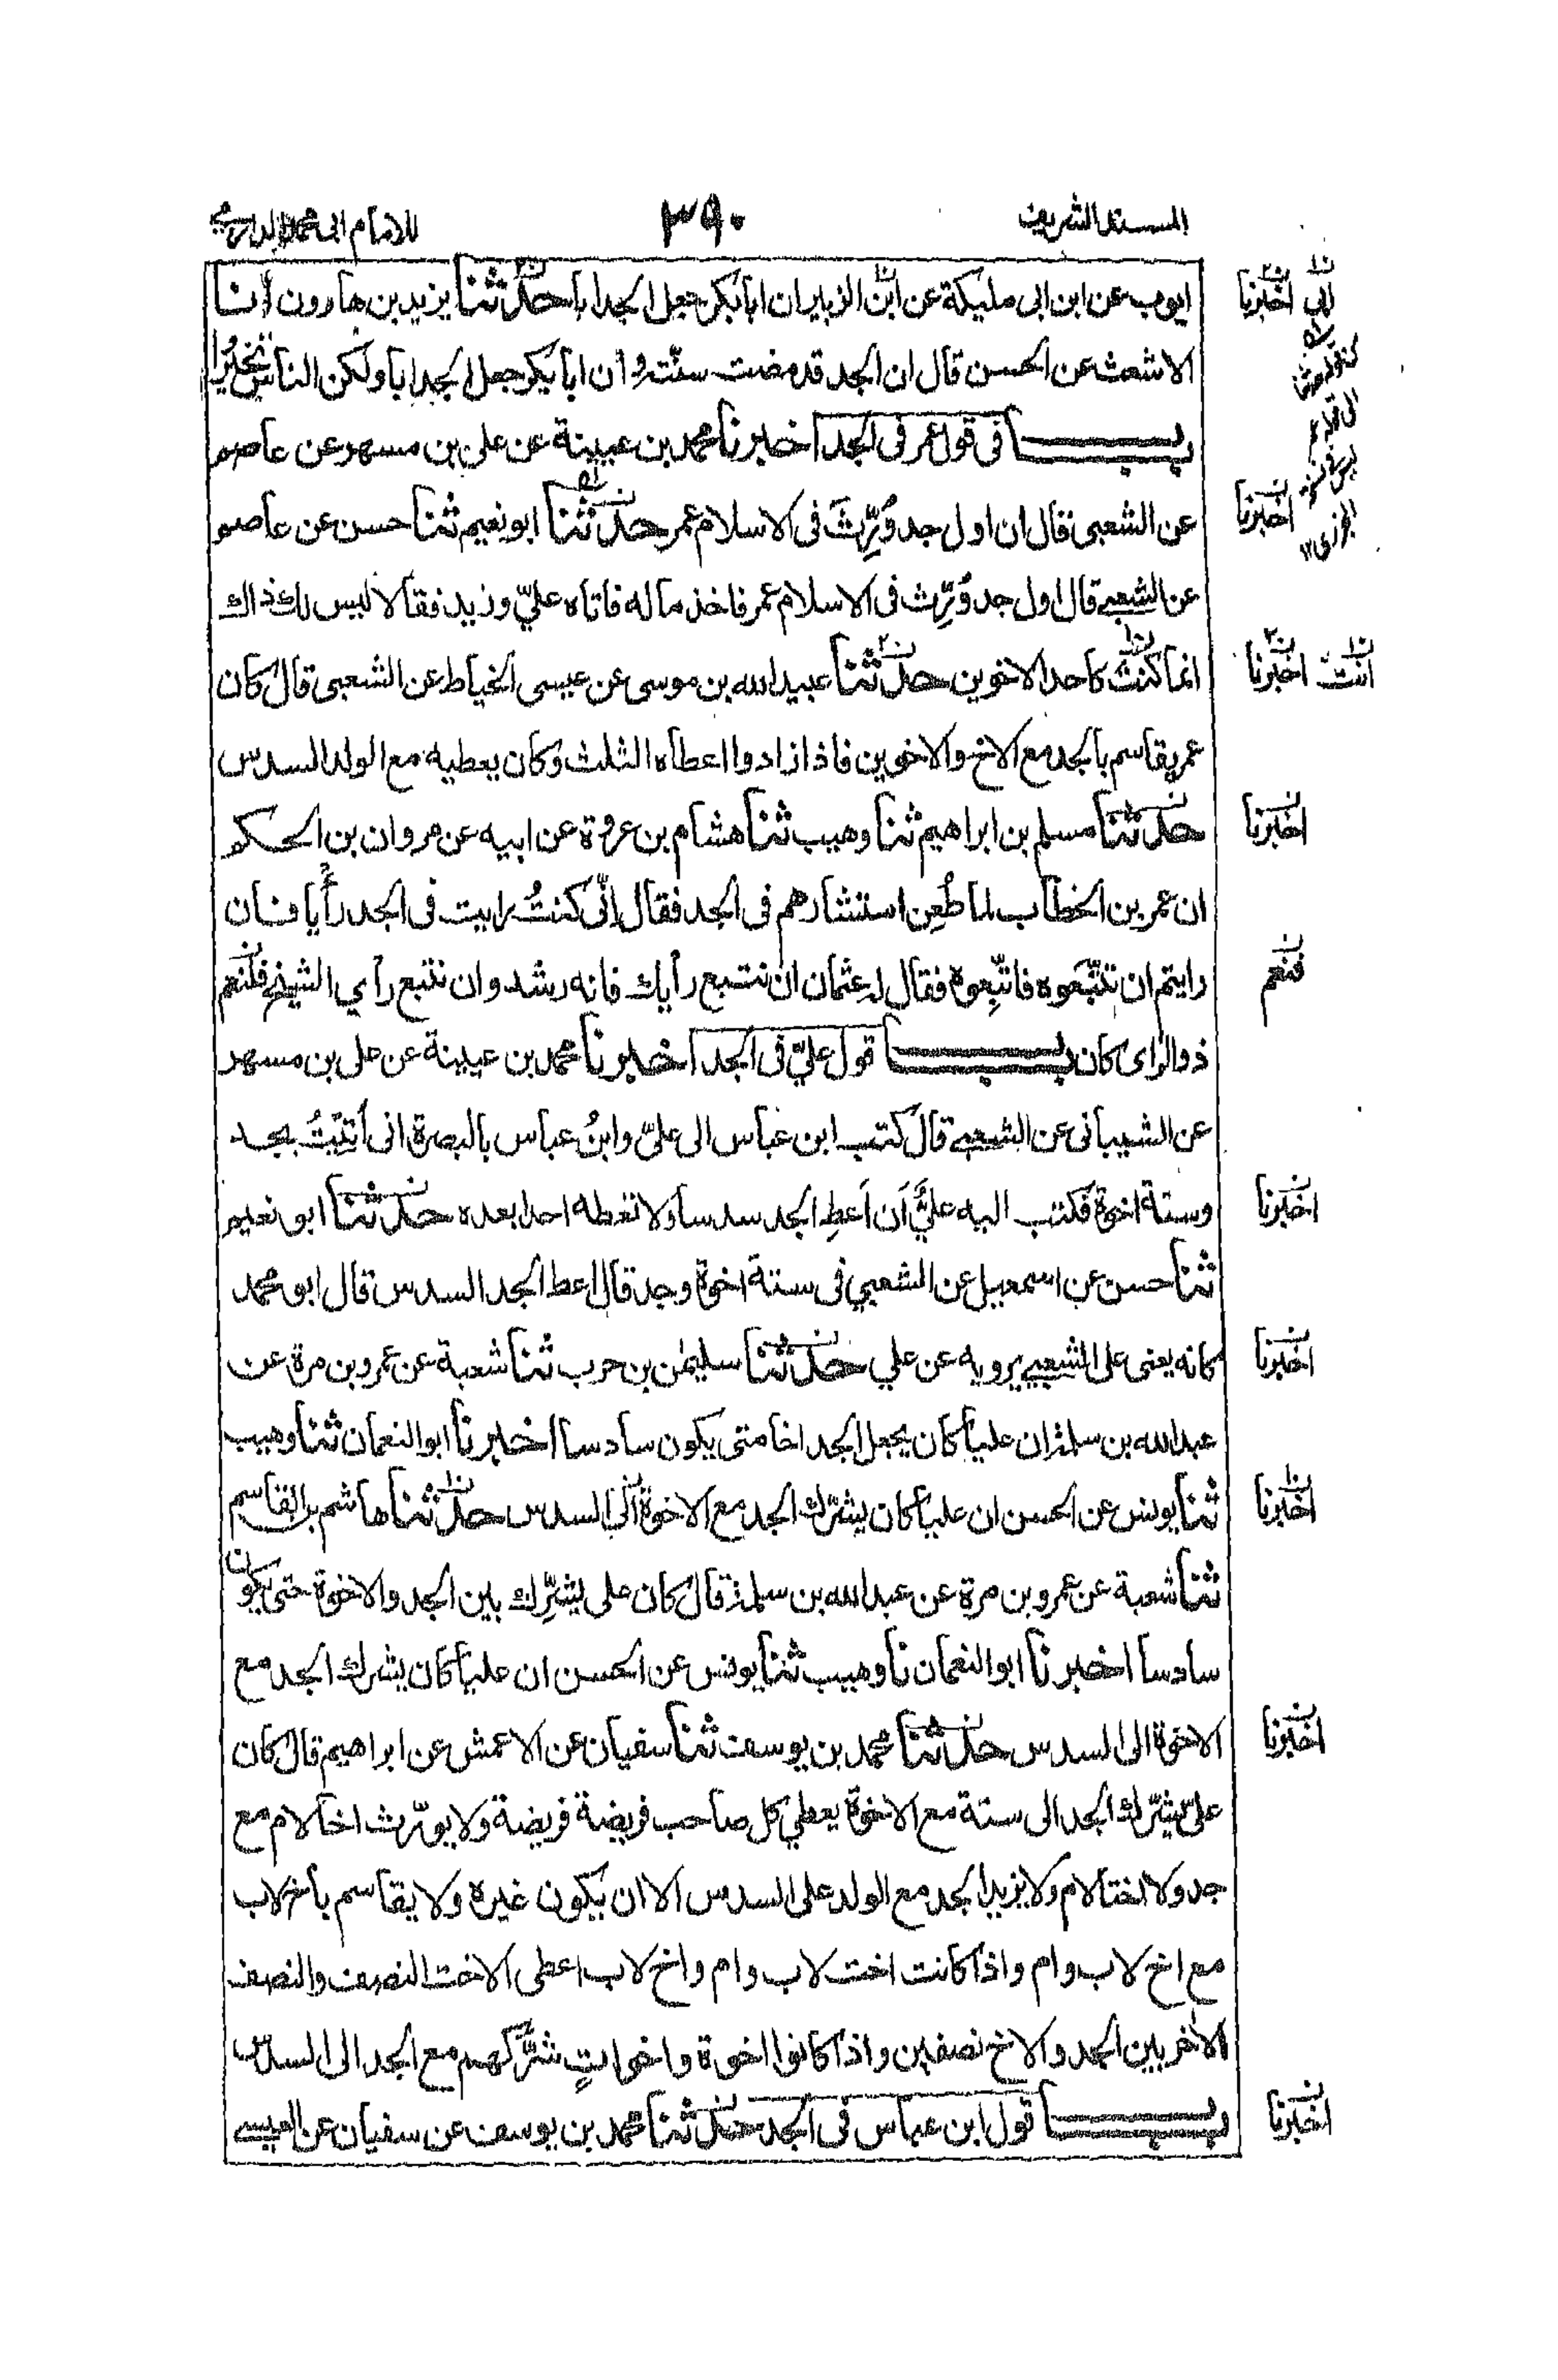 المسند الشريف
٣٩٠
للامام ابى محمد الدارمي
ايوب عن ابن ابى مليكة عن ابن الزبير ان ابا بكر جعل الجد ابا حدثنا يزيد بن هارون انا
الاشعث عن الحسن قال ان الجد قد مضت سنته وان ابا بكر جعل الجد ابا ولكن الناس تخيروا
باب فى قول عمر فى الجد اخبرنا محمد بن عيينة عن على بن مسهر عن عاصم
عن الشعبى قال ان اول جد وُرِّثَ فى الاسلام عمر حدثنا ابو نعيم ثنا حسن عن عاصم
عن الشعبي قال اول جد وُرِّث فى الاسلام عمر فاخذ ماله فاتاه عليّ وزيد فقالا ليس لك ذاك
انما كنتَ كاحد الاخوين حدثنا عبيد الله بن موسى عن عيسى الخياط عن الشعبى قال كان
عمر يقاسم بالجد مع الاخ والاخوين فاذا زادوا اعطاه الثلث وكان يعطيه مع الولد السدس
حدثنا مسلم بن ابراهيم ثنا وهيب ثنا هشام بن عروة عن ابيه عن مروان بن الحكم
ان عمر بن الخطاب لما طُعِن استشارهم فى الجد فقال انّى كنتُ رايت فى الجد رأيا فان
رايتم ان تتّبعوه فاتّبِعوه فقال له عثمان ان نتبع رأيك فانه رشد وان نتبع رأي الشيخ فلنعم
ذو الراى كان باب قول عليّ فى الجد اخبرنا محمد بن عيينة عن على بن مسهر
عن الشيبانى عن الشعبي قال كتب ابن عباس الى عليّ وابنُ عباس بالبصرة انى أتيتُ بجد
وستة اخوة فكتب اليه عليٌّ اَن اَعطِ الجد سدسا ولا تعطه احدا بعده حدثنا ابو نعيم
ثنا حسن عن اسمعيل عن الشعبي فى ستة اخوة وجد قال اعط الجد السدس قال ابو محمد
كانه يعنى على الشعبي يرويه عن علي حدثنا سليمٰن بن حرب ثنا شعبة عن عمرو بن مرة عن
عبد الله بن سلمة ان عليا كان يجعل الجد اخا متى يكون سادسا اخبرنا ابو النعمان ثنا وهيب
ثنا يونس عن الحسن ان عليا كان يشرّك الجد مع الاخوة الى السدس حدثنا هاشم بن القاسم
ثنا شعبة عن عمرو بن مرة عن عبد الله بن سلمة قال كان على يشرِّك بين الجد والاخوة حتى يكون
سادسا اخبرنا ابو النعمان نا وهيب ثنا يونس عن الحسن ان عليا كان يشرك الجد مع
الاخوة الى السدس حدثنا محمد بن يوسف ثنا سفيان عن الاعمش عن ابراهيم قال كان
علىّ يشرّك الجد الى ستة مع الاخوة يعطي كل صاحب فريضة فريضة ولا يورّث اخا لام مع
جد ولا اختا لام ولا يزيد الجد مع الولد على السدس الا ان يكون غيره ولا يقاسم باخ لاب
مع اخ لاب وام واذا كانت اخت لاب وام واخ لاب اعطى الاخت النصف والنصف
الاٰخر بين الجد والاخ نصفين واذا كانوا اخوة واخواتٍ شرَّكهم مع الجد الى السدس
باب قول ابن عباس فى الجد حدثنا محمد بن يوسف عن سفيان عن العبسي
اخبرنا
اخبرنا
انت اخبرنا
اخبرنا
فنعم
اخبرنا
اخبرنا
اخبرنا
اخبرنا
اخبرنا